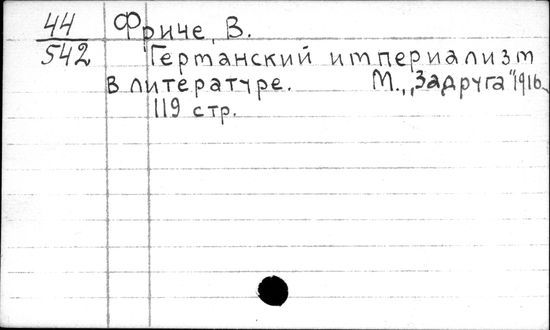 44 Фриче, В.
542 Германский империализм
в литературе. М., „Задруга" 1916.
119 стр.